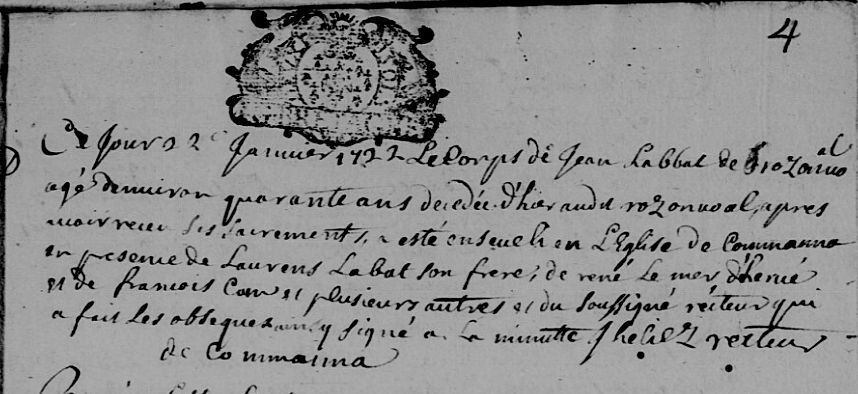 4
Ce jour 22e Janvier 1722 Le Corps de Jean Labbat de rozonuoal
agé d'enuiron quarante ans decedé d'hier audit rozonuoal, apres
auoir receu ses sacrements, a esté enseueli en L'Eglise de Commanna
en presence de Laurens Labat son frere, de rené Le mer d'herué
et de francois et plusieurs autres et du soussigné recteur qui
a fait Les obseques ainsy signé a La minutte recteur
de Commanna